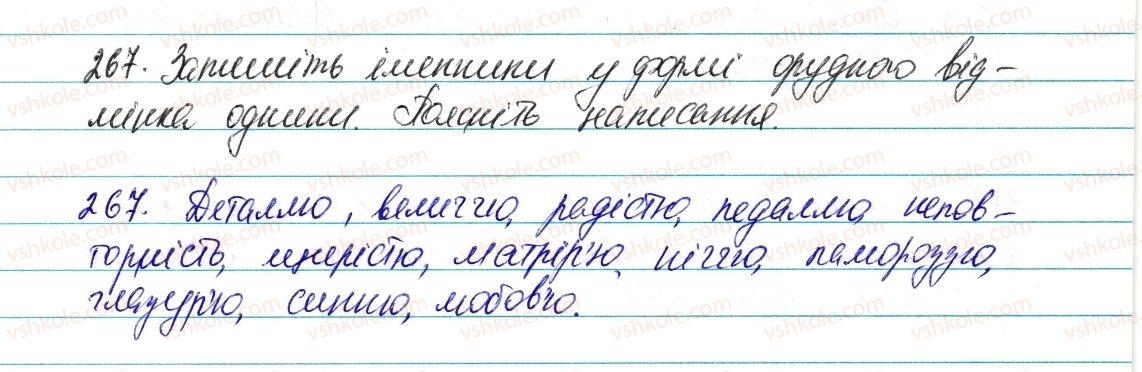 267. Запишіть іменники у формі орудного від-
мінка однини. Поясніть написання.
267. Деталлю, величчю, радістю, педаллю, непов-
торність, щирістю, матір'ю, піччю, памороззю,
глазур'ю, синню, любов'ю.